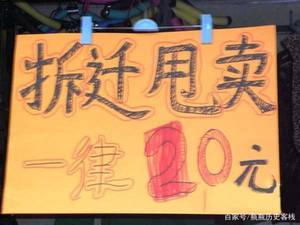 拆迁甩卖
一律20元
百家号/熊熊历史客栈